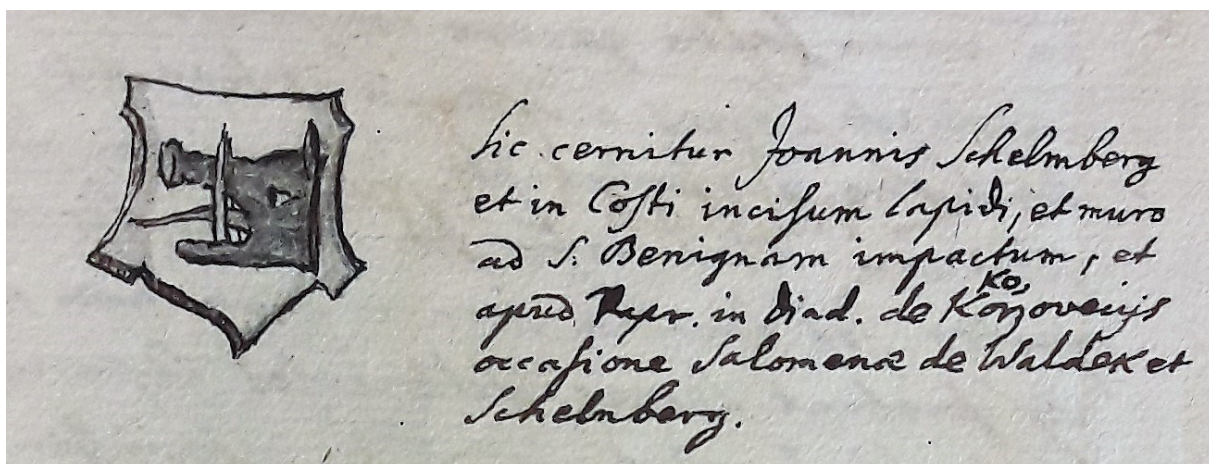 Sic cernitur Joannis Schelmberg
et in Costi incisum lapidi, et muro
ad S. Benignam impactum, et
apud Papr. in Diad. de
occasione Salomenæ de Waldek et
Schelnberg.